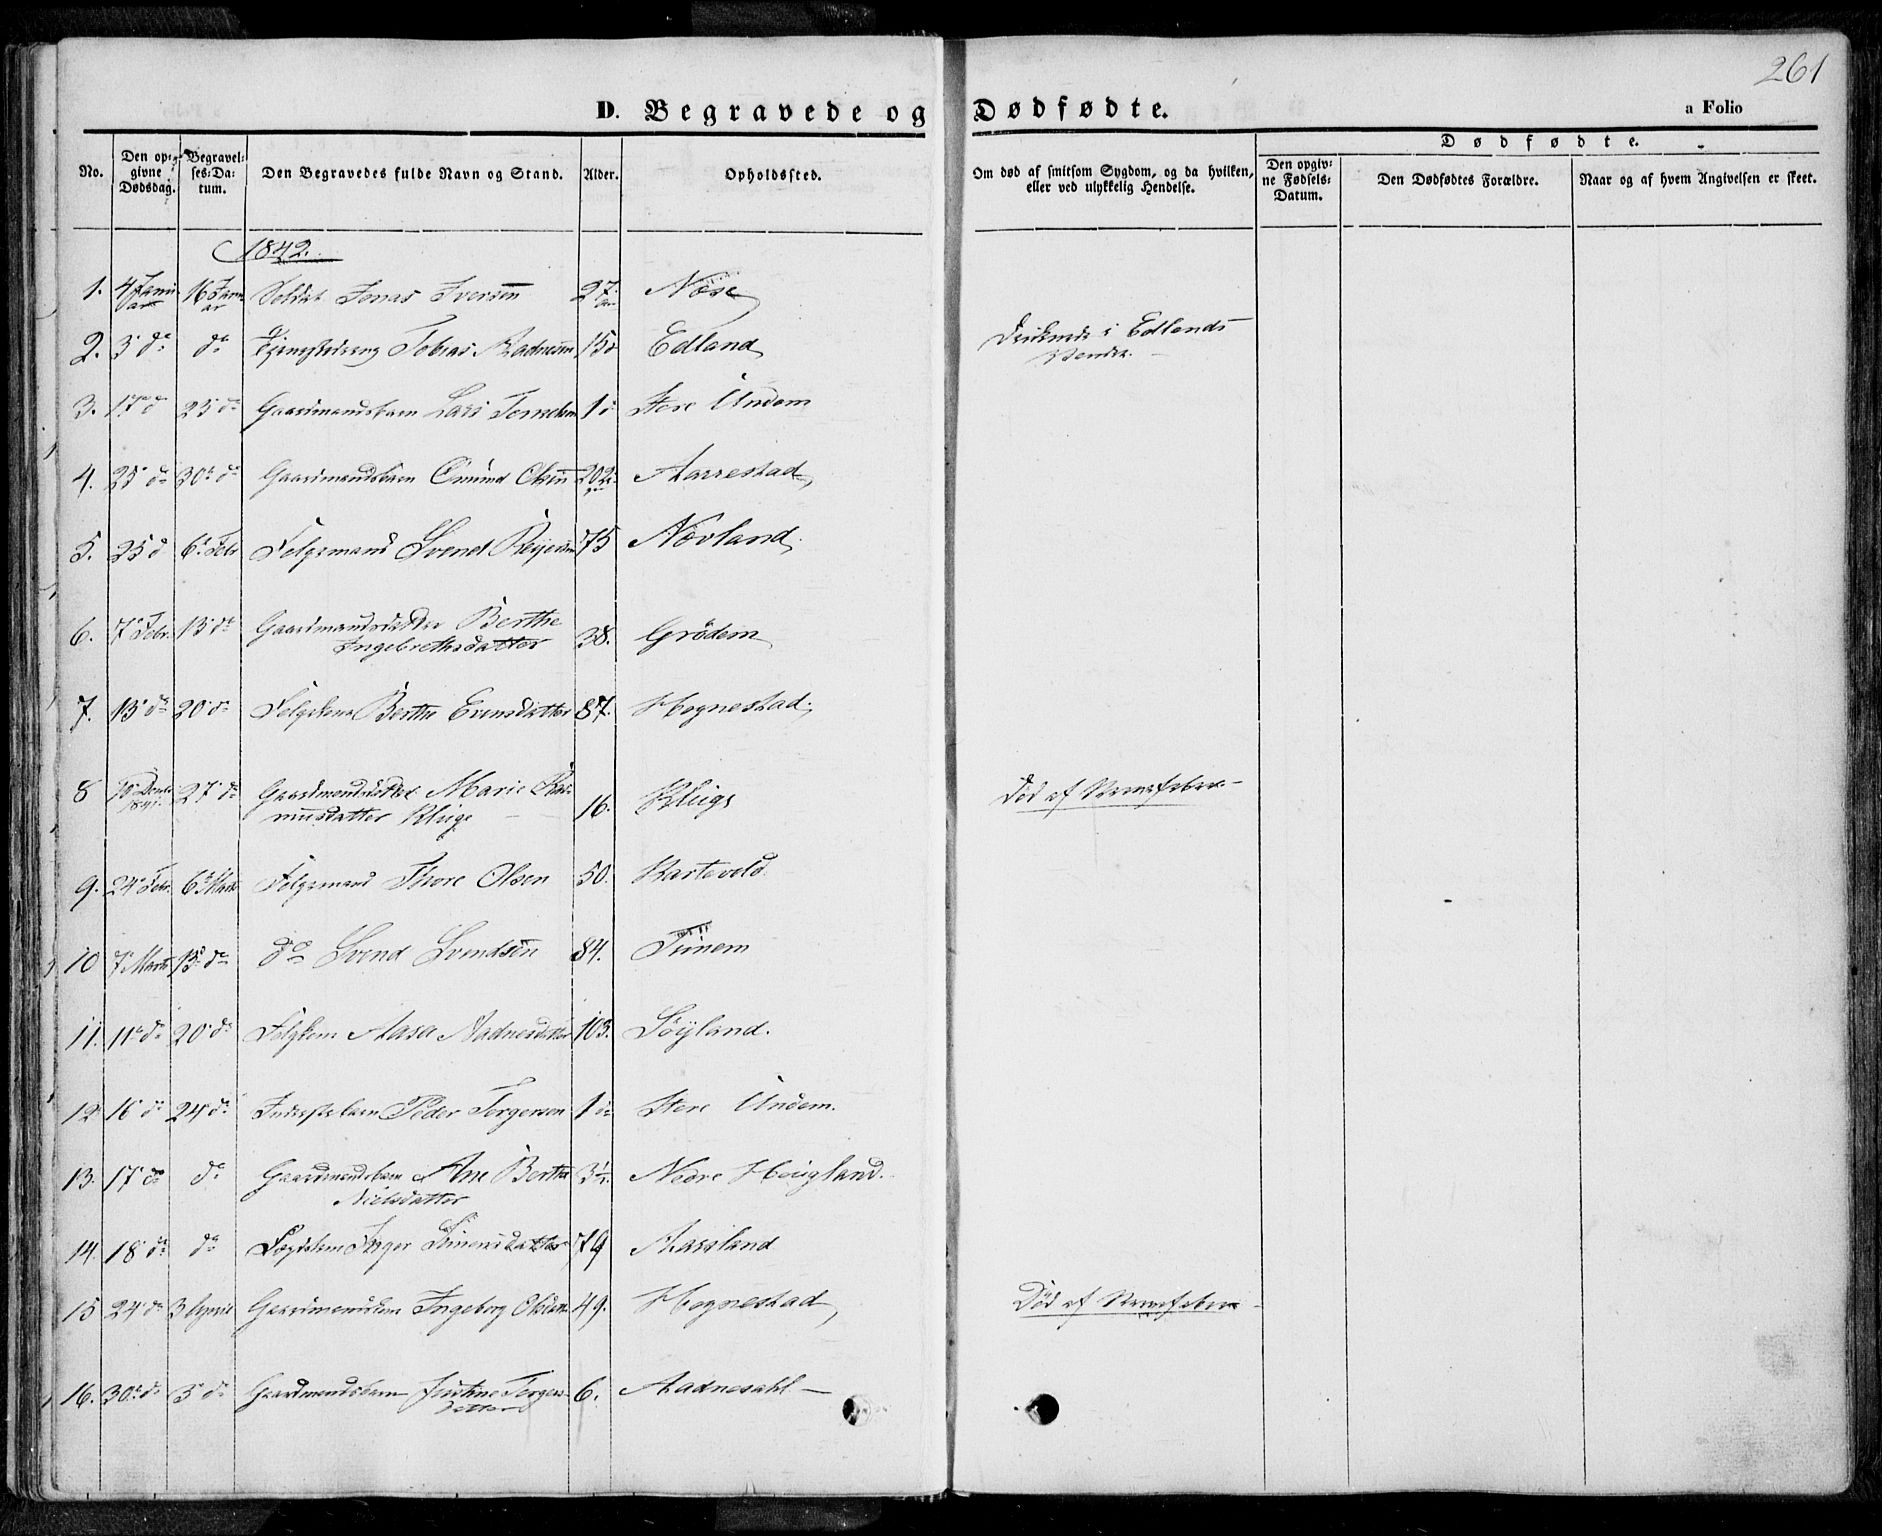 261
D. Begravede og Dødfødte.
a Folio
No.
Den opgivne Dødsdag.
Begravelses-Datum.
Den Begravedes fulde Navn og Stand.
Alder.
Opholdssted.
Om død af smitsom Sygdom, og da hvilken, eller ved ulykkelig Hendelse.
Dødfødte.
Den opgivne Fødsels-Datum.
Den Dødfødtes Forældre.
Naar og af hvem Angivelsen er skeet.
1842.
1. 4 Januar 16 Januar Soldat Jonas Iversen 27 Næse
2. 3 do do Tobias 15 Edland i Edlands
3. 17 do 23 do Gaardmandsbarn Lars 1 Store Undem
4. 25 do 30 do Gaardmandsbarn Omund Olsen Aarrestad
5. 25 d 6 Febr Følgemand Svend 75 Novland
6. 7 Febr. 13 do Gaardmandsdatter Berthe
Ingebrethsdatter 38. Grödem
7. 13 do 20 do Følgekone Berthe 87. Hognestad
8 1841. 27 do Gaardmandsdatter Marie Ras-
musdatter Kluge 16. Kluge Död af Nervefeber
9. 24 Febr. 6 Marts Følgemand Thore Olsen 50. Kartevold
10 7 Marts 13 do do Svend Svendsen 84. Tunem
11. 11 do 20 do Følgekone Aasa Aadnesdatter 103. Söyland.
12 16 do 24 do Peder Torgersen 1 Store Undem.
13. 17 do do Gaardmandsbarn Ane Berthe 3½ Nedre Höigland.
Nielsdatter
14. 18 do do Inger Simensdatter 79 Aarsland
15 24 do 3 April Gaardmandskone Ingeborg Olsdatter 49. Hognestad Död af Nervefeber
16. 30 do 3 do Gaardmandsbarn Justine Torgers-
datter 6. Aadnesahl